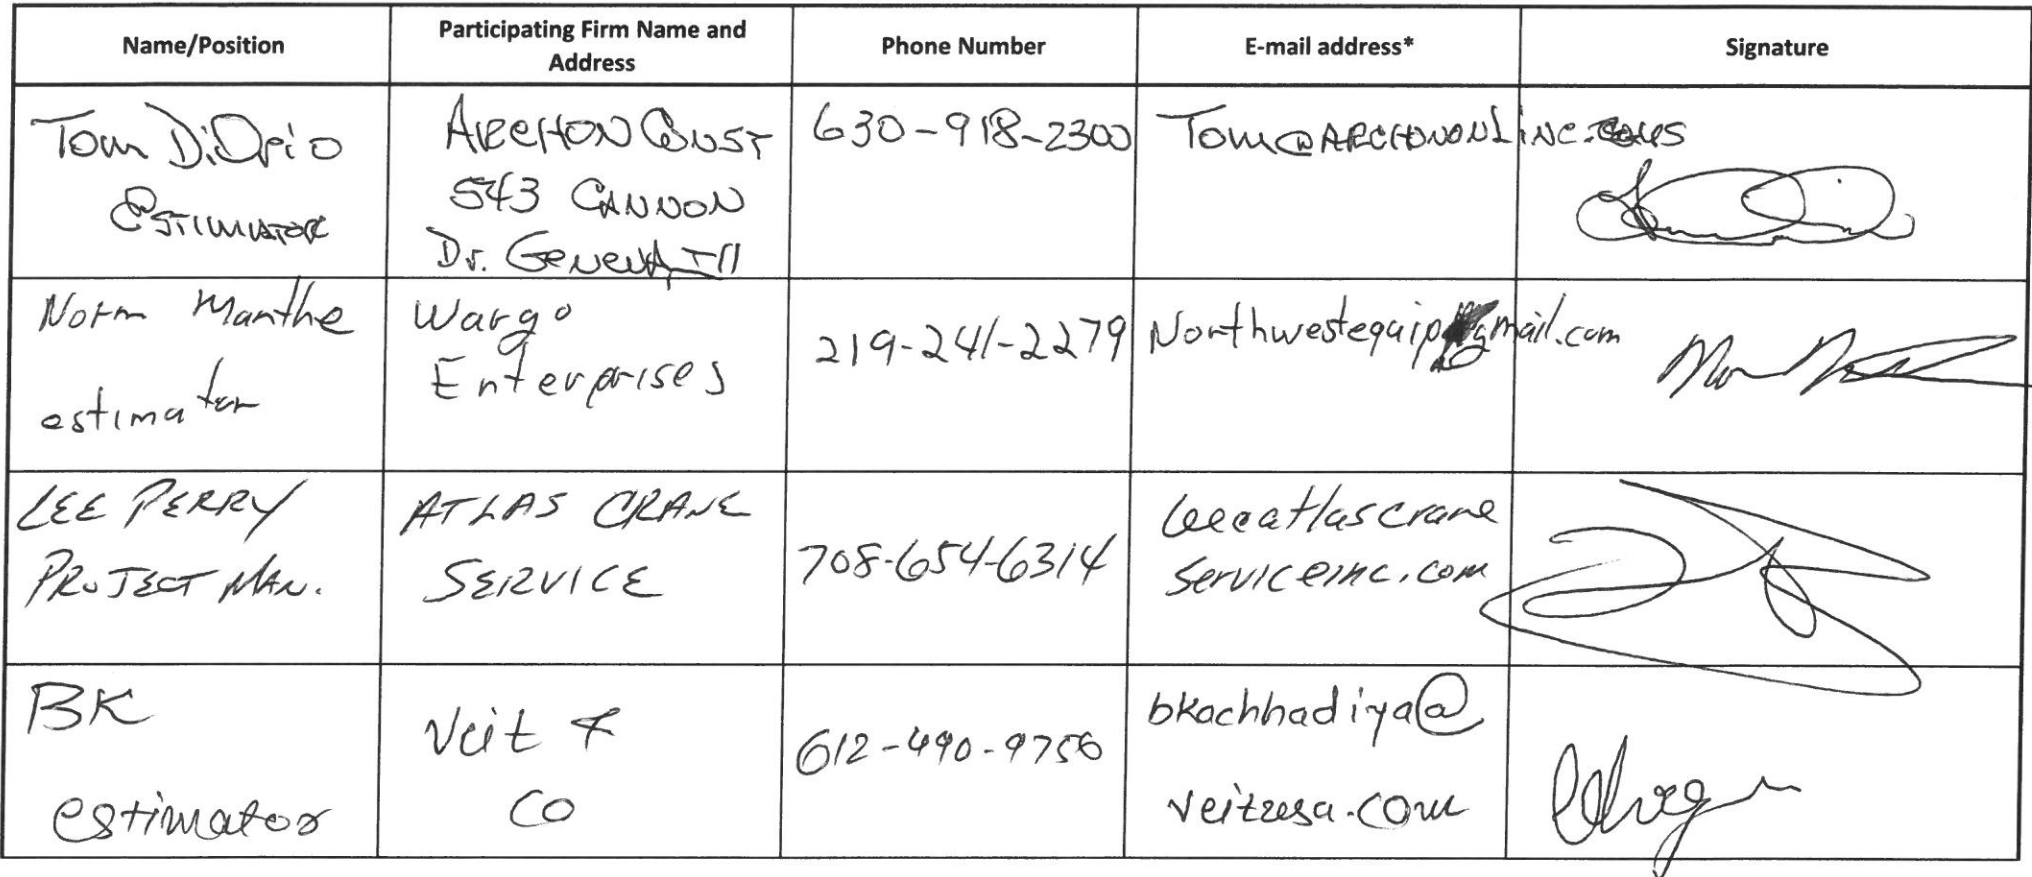 Name/Position
Participating Firm Name and
Address
Phone Number
E-mail address*
Signature
Tom DiOrio
ESTIMATOR
ARCHON CONST
543 CANNON
Dr. GENEVA, Ill
630-918-2300
Norm Manthe
estimator
Wargo
Enterprises
219-241-2279
Northwestequip@gmail.com
LEE PERRY
PROJECT MAN.
ATLAS CRANE
SERVICE
708-654-6314
leeatlascrane
serviceinc.com
BK
estimator
Veit &
CO
612-490-9756
bkachhadiya@
veitusa.com